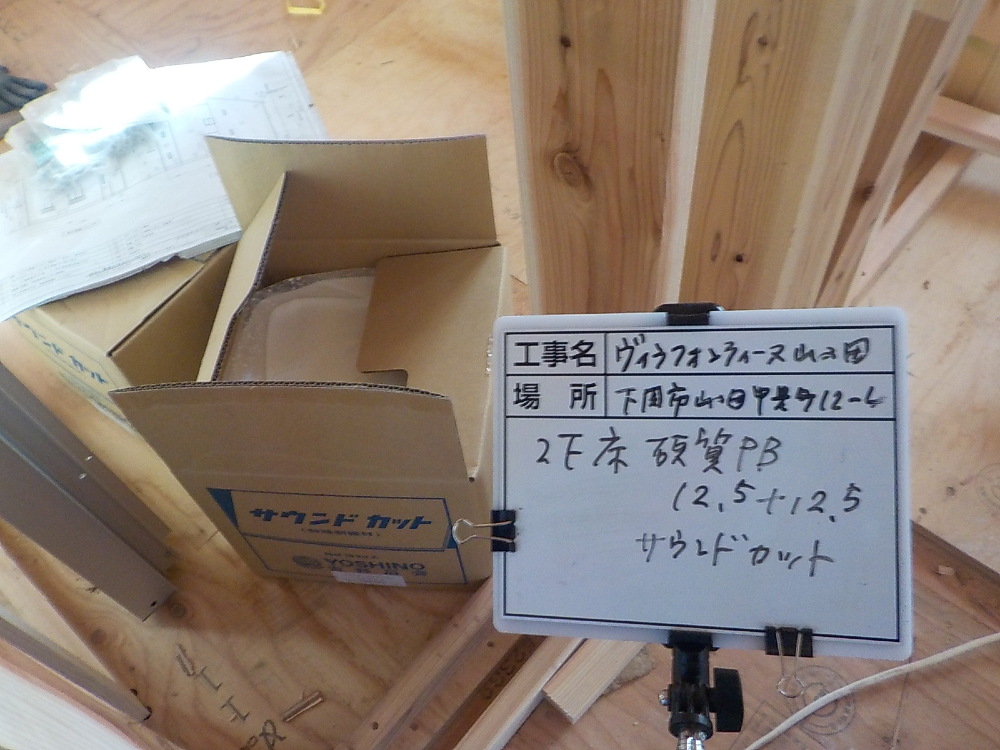 工事名 ヴィラフォンティーヌ山の田
場所 下関市山の田
2F床 硬質PB
12.5+12.5
サウンドカット
サウンドカット
YOSHINO
サウンドカット